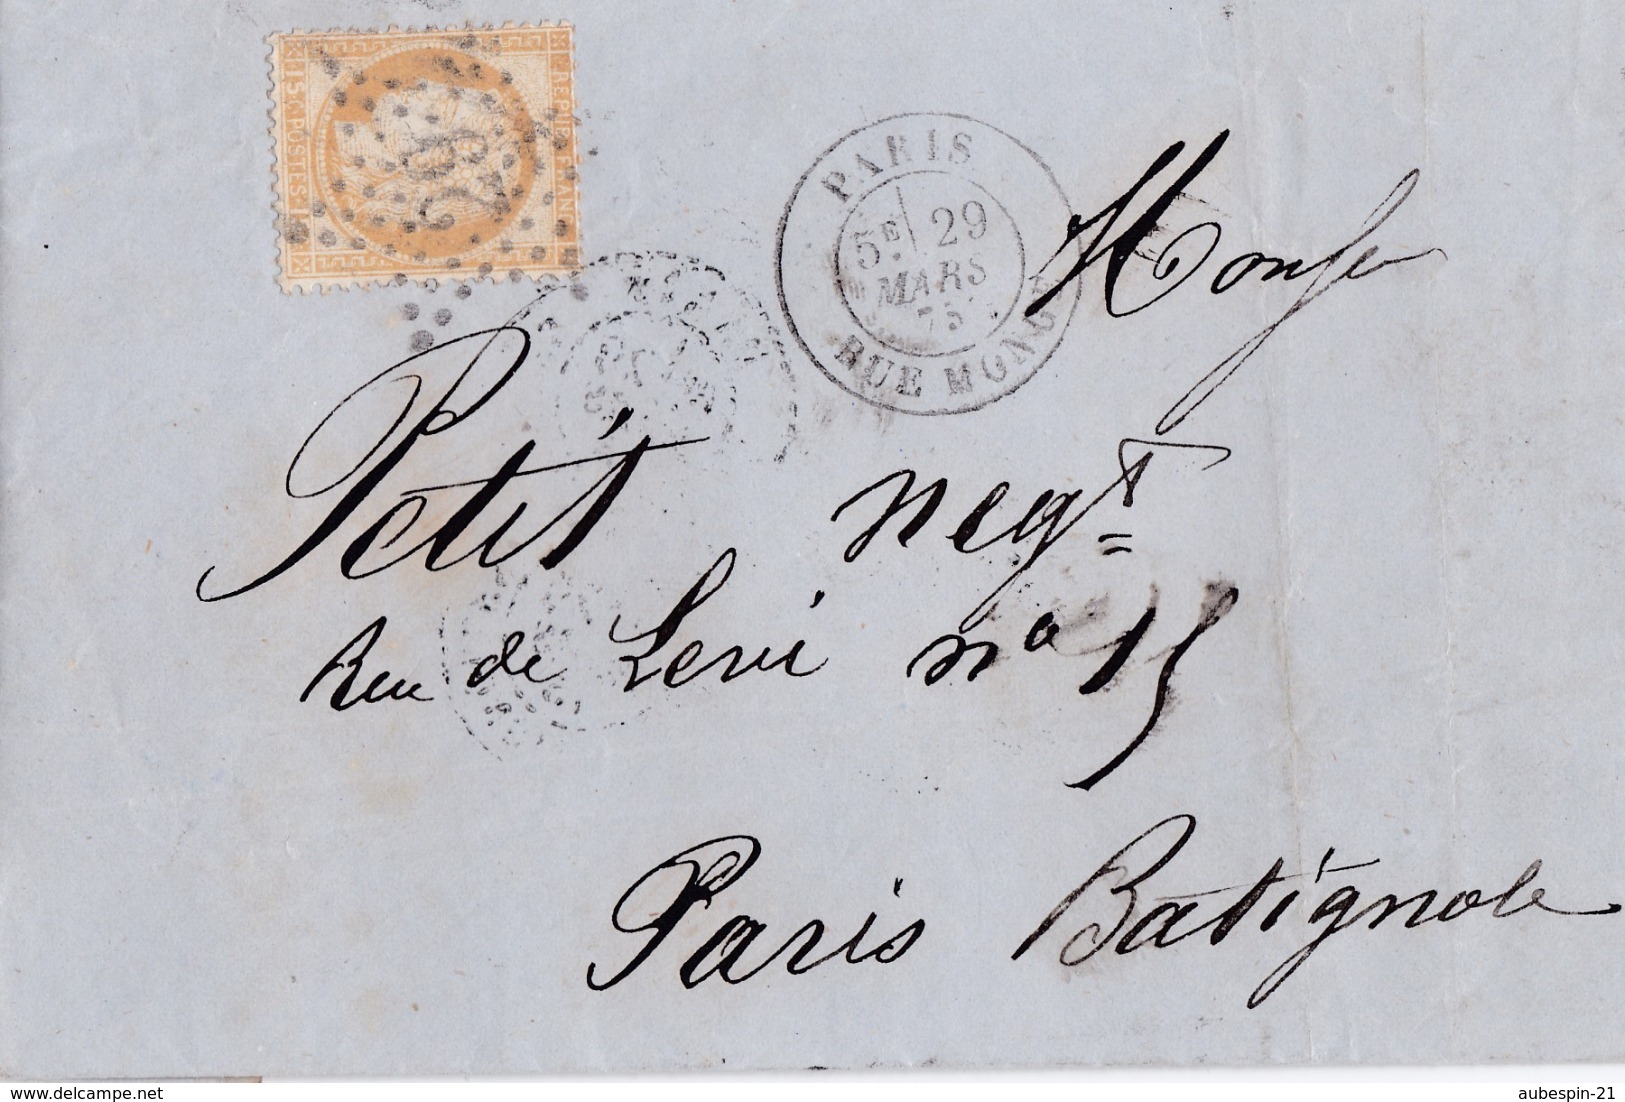 15 C. POSTES 15 C.
REPUB. FRANC.
29
PARIS
5E 29
MARS
75
RUE MONGE
Monsieur
Petit negt
Rue de Levi no 15
Paris Batignole
www.delcampe.net
aubespin-21